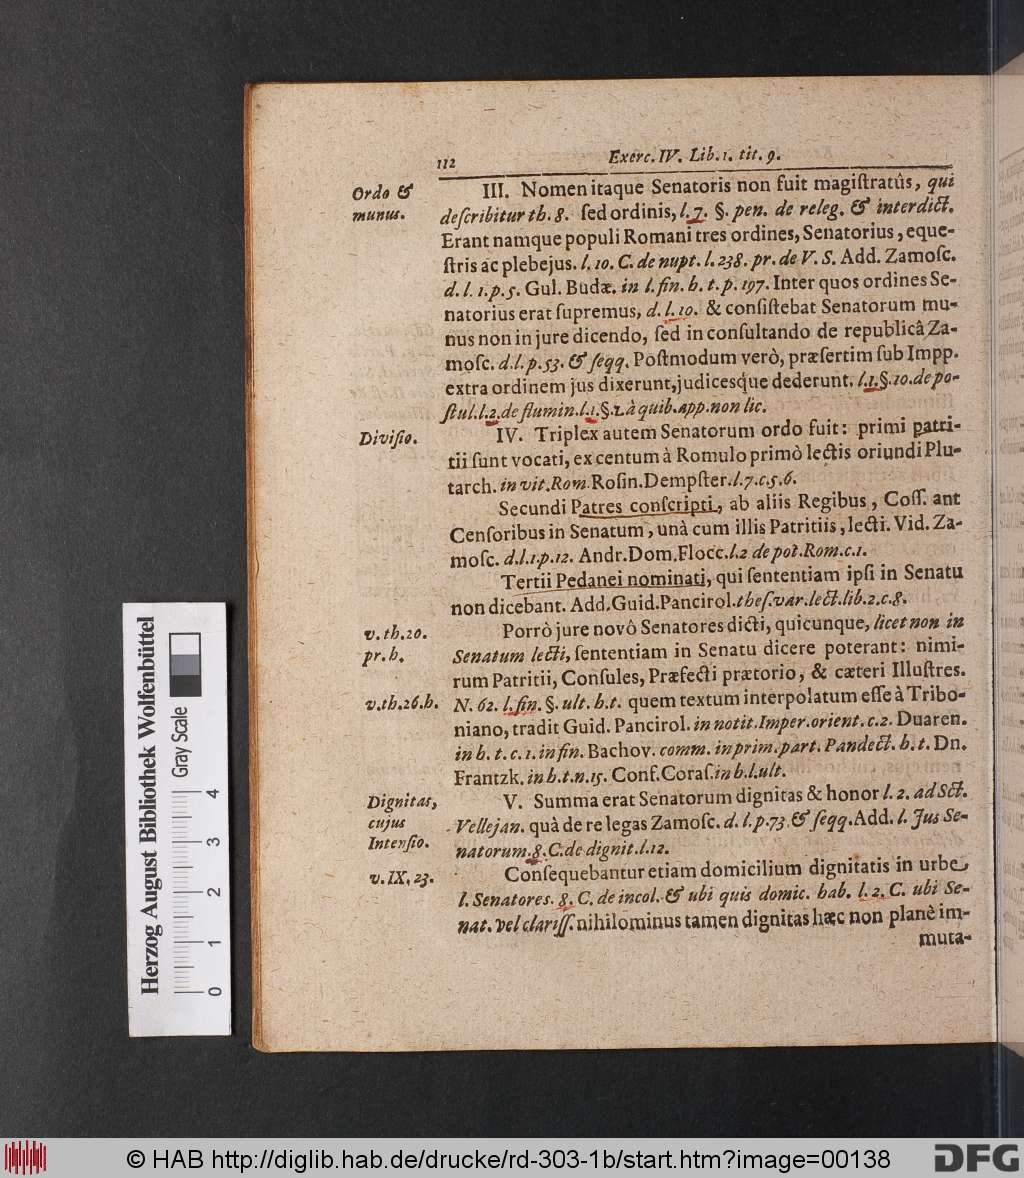 112
Exerc. IV. Lib. 1. tit. 9.
Ordo &
munus.
III. Nomen itaque Senatoris non fuit magiſtratûs, qui
deſcribitur th. 8. ſed ordinis, l. 7. §. pen. de releg. & interdict.
Erant namque populi Romani tres ordines, Senatorius, eque-
ſtris ac plebejus. l. 10. C. de nupt. l. 238. pr. de V. S. Add. Zamoſc.
d. l. 1. p. 5. Gul. Budæ. in l. fin. h. t. p. 197. Inter quos ordines Se-
natorius erat ſupremus, d. l. 10. & conſiſtebat Senatorum mu-
nus non in jure dicendo, ſed in conſultando de republicâ Za-
moſc. d. l. p. 53. & ſeqq. Poſtmodum verò, præſertim ſub Impp.
extra ordinem jus dixerunt, judicesq́ue dederunt. l. 1. §. 10. de po-
ſtul. l. 2. de flumin. l. 1. §. 1. à quib. app. non lic.
Diviſio.
IV. Triplex autem Senatorum ordo fuit: primi patri-
tii ſunt vocati, ex centum à Romulo primò lectis oriundi Plu-
tarch. in vit. Rom. Roſin. Dempſter. l. 7. c. 5. 6.
Secundi Patres conſcripti, ab aliis Regibus, Coſſ. ant
Cenſoribus in Senatum, unà cum illis Patritiis, lecti. Vid. Za-
moſc. d. l. 1. p. 12. Andr. Dom. Flocc. l. 2 de pot. Rom. c. 1.
Tertii Pedanei nominati, qui ſententiam ipſi in Senatu
non dicebant. Add. Guid. Pancirol. theſ. var. lect. lib. 2. c. 8.
v. th. 20.
pr. h.
Porrò jure novô Senatores dicti, quicunque, licet non in
Senatum lecti, ſententiam in Senatu dicere poterant: nimi-
rum Patritii, Conſules, Præfecti prætorio, & cæteri Illuſtres.
v. th. 26. h.
N. 62. l. fin. §. ult. h. t. quem textum interpolatum eſſe à Tribo-
niano, tradit Guid. Pancirol. in notit. Imper. orient. c. 2. Duaren.
in h. t. c. 1. in fin. Bachov. comm. in prim. part. Pandect. h. t. Dn.
Frantzk. in h. t. n. 15. Conf. Coraſ. in h. l. ult.
Dignitas,
cujus
Intenſio.
V. Summa erat Senatorum dignitas & honor l. 2. ad Sct.
Vellejan. quà de re legas Zamoſc. d. l. p. 73 & ſeqq. Add. l. Jus Se-
natorum. 8. C. de dignit. l. 12.
v. IX. 23.
Conſequebantur etiam domicilium dignitatis in urbe,
l. Senatores. 8. C. de incol. & ubi quis domic. hab. l. 2. C. ubi Se-
nat. vel clariſſ. nihilominus tamen dignitas hæc non planè im-
muta-
Herzog August Bibliothek Wolfenbüttel
Gray Scale
0 1 2 3 4
© HAB http://diglib.hab.de/drucke/rd-303-1b/start.htm?image=00138
DFG